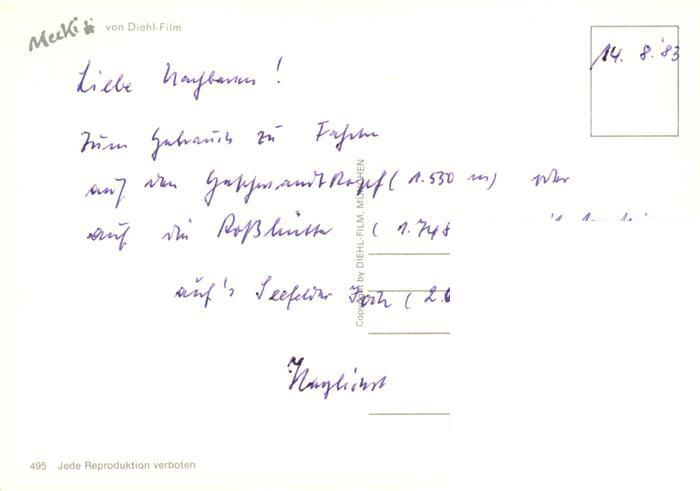 Mecki von Diehl-Film
14. 8. '83
Liebe Nachbarn!
Zum Gebrauch zu Fahrten
auf den Gschwandtkopf (1.530 m) oder
auf die Roßhütte (1.748
auf's Seefelder Joch (2.0
Copyright by DIEHL-FILM, MÜNCHEN
495 Jede Reproduktion verboten